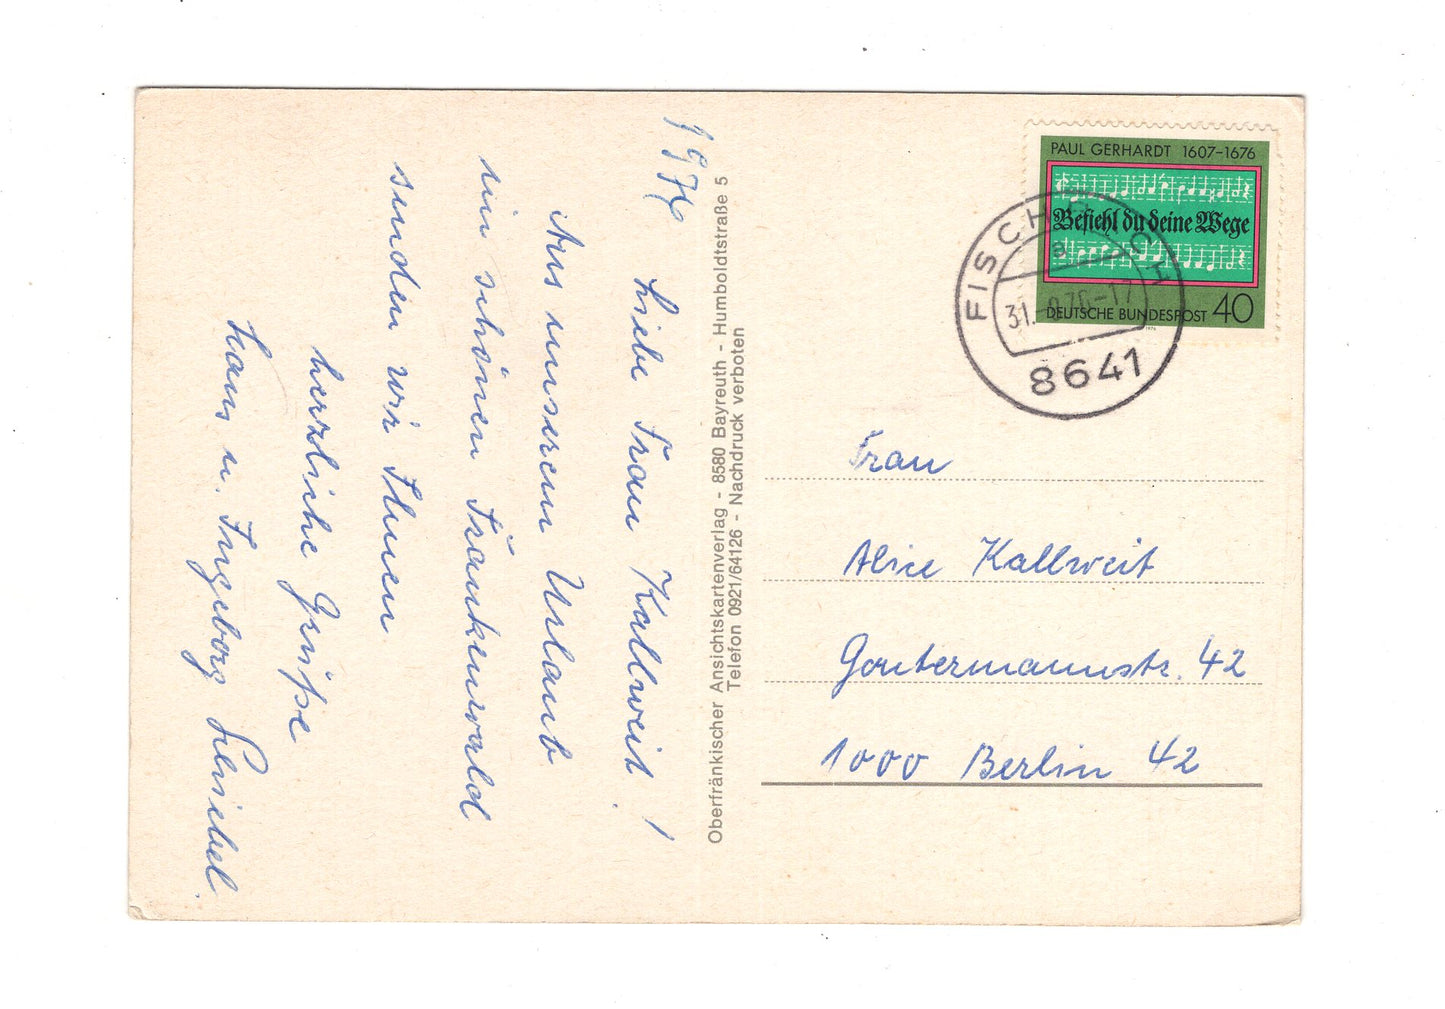 1976
Liebe Frau Kallweit!
Aus unserem Urlaub
im schönen Frankenwald
senden wir Ihnen
herzliche Grüße
Hans u. Ingeborg
Oberfränkischer Ansichtskartenverlag - 8580 Bayreuth - Humboldtstraße 5
Telefon 0921/64126 - Nachdruck verboten
PAUL GERHARDT 1607-1676
Befiehl du deine Wege
DEUTSCHE BUNDESPOST 40
1976
FISCHBACH
a
31.-8.76-17
8641
Frau
Alice Kallweit
Gontermannstr. 42
1000 Berlin 42